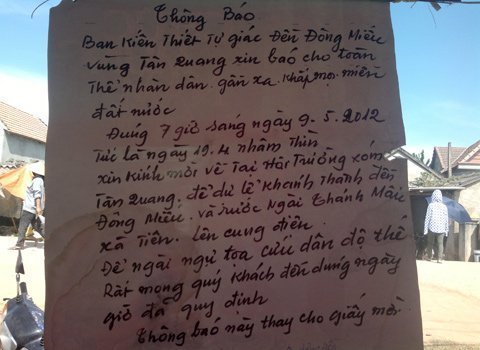 Thông Báo
Ban Kiến Thiết Tự giác Đền Đồng Miếu
vùng Tân Quang xin báo cho toàn
Thể nhân dân. gần xa. Khắp mọi miền
đất nước
Đúng 7 giờ sáng ngày 9.5.2012
Tức là ngày 19.4 nhâm Thìn
xin Kính mời về Tại Hội Trường xóm
Tân Quang. để dự lễ Khánh Thành đền
Đồng Miếu. và rước Ngài Thánh Mẫu
xã Tiên. lên cung điện.
Để ngài ngự tọa cứu dân độ thế
Rất mong quý Khách đến đúng ngày
giờ đã quy định
Thông báo này thay cho giấy mời.